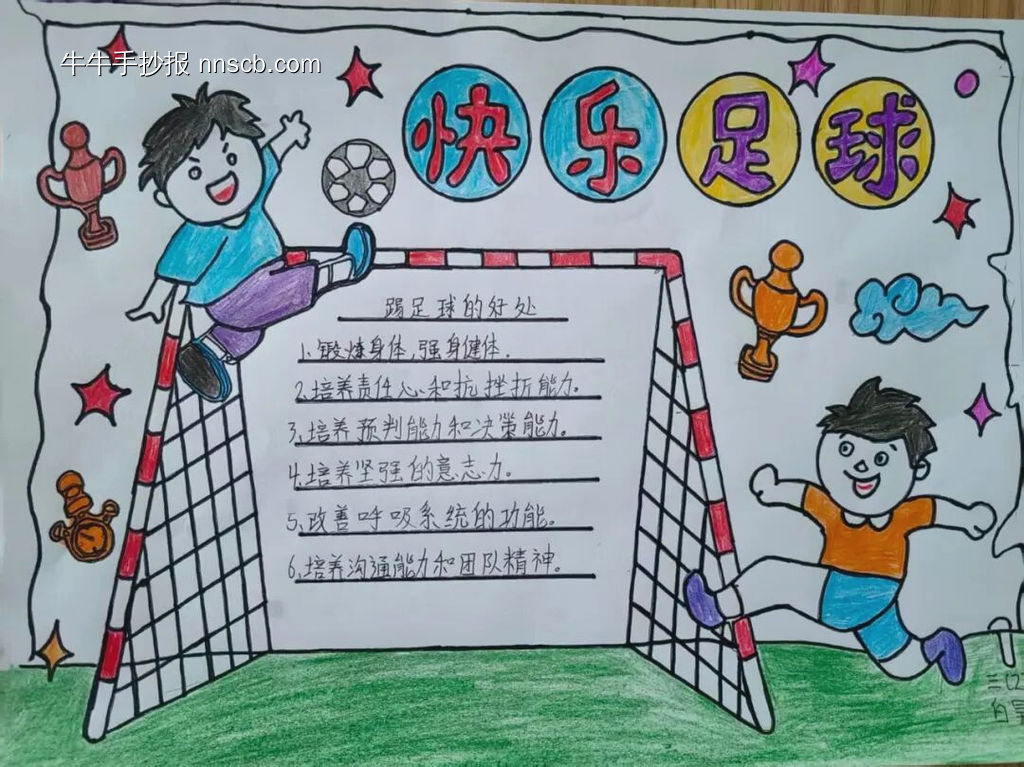 牛牛手抄报 nnscb.com
快乐足球
踢足球的好处
1.锻炼身体,强身健体.
2.培养责任心和抗挫折能力.
3.培养预判能力和决策能力。
4.培养坚强的意志力。
5.改善呼吸系统的功能。
6.培养沟通能力和团队精神。